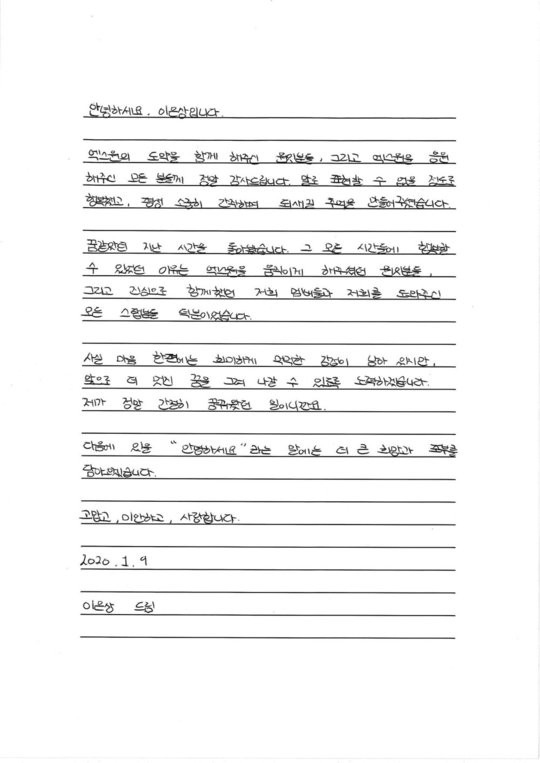 안녕하세요. 이은상입니다.
엑스원의 도약을 함께 해주신 원잇분들, 그리고 엑스원을 응원
해주신 모든 분들께 정말 감사드립니다. 말로 표현할 수 없을 정도로
행복했고, 평생 소중히 간직하며 되새길 추억을 만들어주셨습니다.
꿈같았던 지난 시간을 돌아봤습니다. 그 모든 시간들에 행복할
수 있었던 이유는 엑스원을 움직이게 해주셨던 원잇분들,
그리고 진심으로 함께했던 저희 멤버들과 저희를 도와주신
모든 스텝분들 덕분이었습니다.
사실 마음 한편에는 희미하게 먹먹한 감정이 남아 있지만,
앞으로 더 멋진 꿈을 그려 나갈 수 있도록 노력하겠습니다.
제가 정말 간절히 꿈꿔왔던 일이니깐요.
다음에 있을 “안녕하세요”라는 말에는 더 큰 희망과 포부를
담아오겠습니다.
고맙고, 미안하고, 사랑합니다.
2020.1.9
이은상 드림